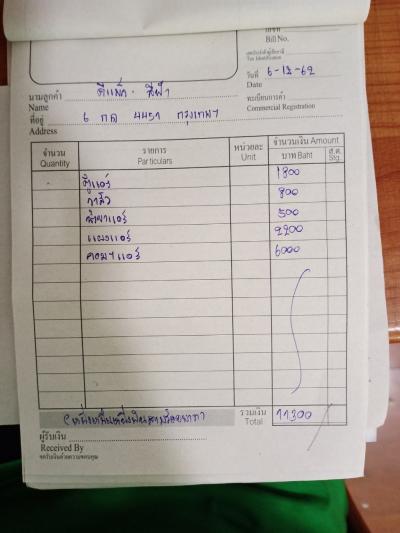 เลขที่
Bill No.
เลขประจำตัวผู้เสียภาษี
Tax Identification
วันที่ 6-12-62
Date
นามลูกค้า
Name
ทะเบียนการค้า
Commercial Registration
ที่อยู่ 6 กค 4451 กรุงเทพฯ
Address
จำนวน รายการ หน่วยละ จำนวนเงิน Amount
Quantity Particulars Unit บาท Baht ส.ต. Stg.
ตู้แอร์ 1800
800
500
แผงแอร์ 2200
คอมฯแอร์ 6000
(หนึ่งหมื่นหนึ่งพันสามร้อยบาท) รวมเงิน 11300
Total
ผู้รับเงิน
Received By